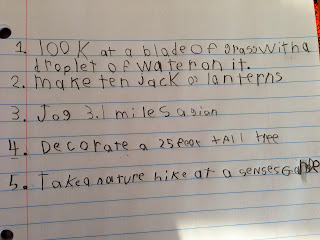 1. look at a blade of grass with a
droplet of water on it.
2. make ten Jack o lanterns
3. Jog 3.1 miles agian
4. Decorate a 25 foot tall tree
5. Take a nature hike at a senses